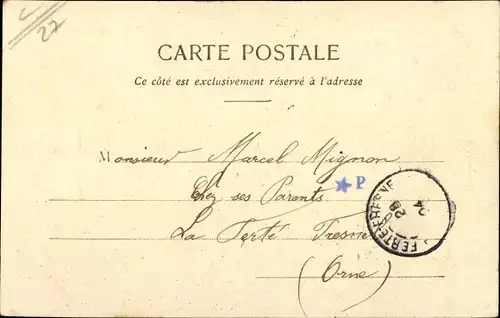 27
CARTE POSTALE
Ce côté est exclusivement réservé à l'adresse
Monsieur Marcel Mignon
Chez ses Parents
★ P
La Ferté Fresnel
(Orne)
FERTE-FRESNEL
28
04